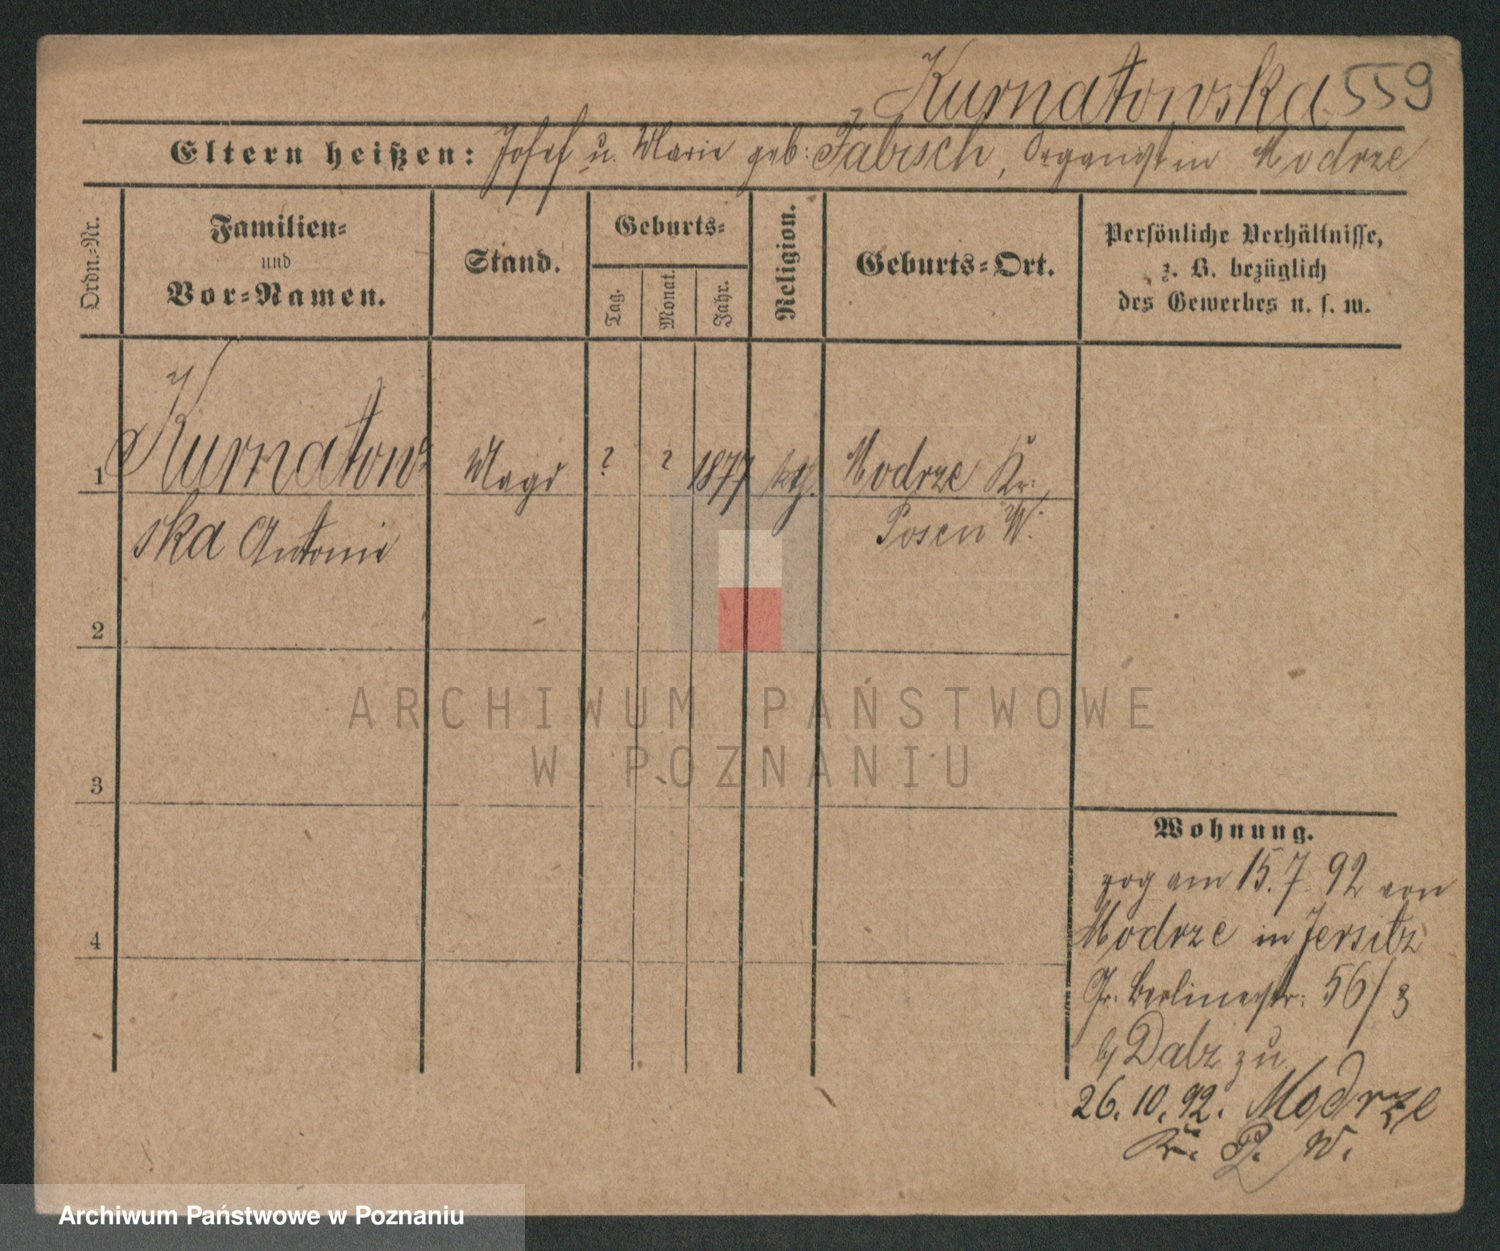 Kurnatowska 559
Eltern heißen: Josef u. Marie geb: Fabisch, Organist in Modrze
Ordn.-Nr.
Familien-
und
Vor-Namen.
Stand.
Geburts-
Tag.
Monat.
Jahr.
Religion.
Geburts-Ort.
Persönliche Verhältnisse,
z. B. bezüglich
des Gewerbes u. s. w.
1 Kurnatow- Magd ? ? 1877 kth. Modrze Kr:
ska Antonie Posen W.
2
3
4
Wohnung.
zog am 15.7 92 von
Modrze in Jersitz
Gr. Berlinerstr: 56/3
b/ Dalz zu
26.10.92. Modrze
Kr. P. W.
ARCHIWUM PAŃSTWOWE
W POZNANIU
Archiwum Państwowe w Poznaniu